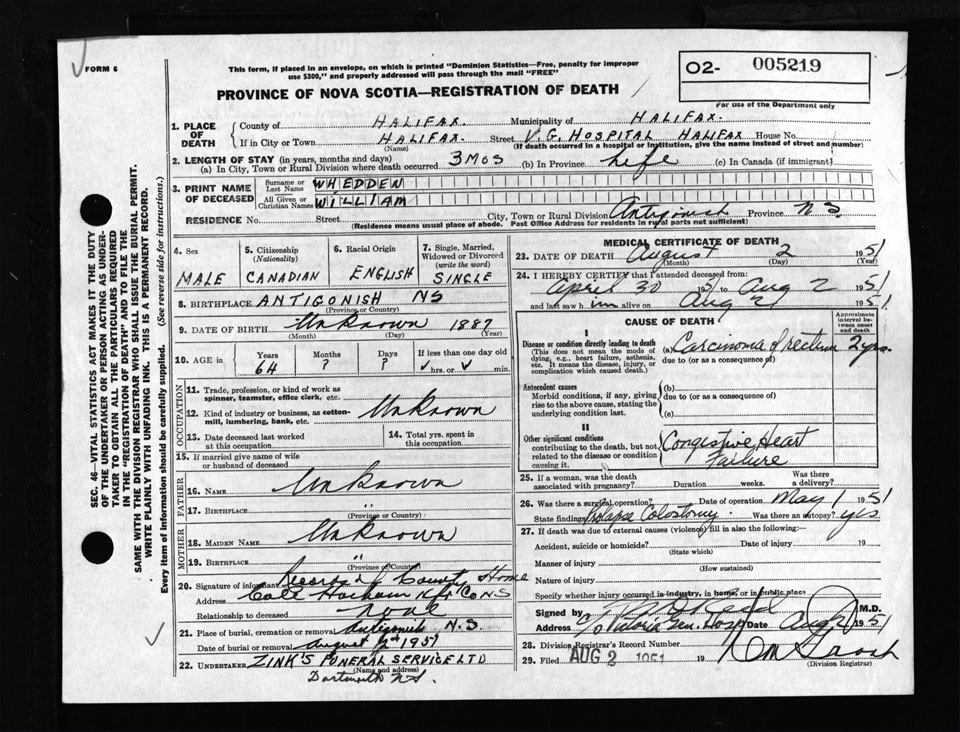 FORM 6
This form, if placed in an envelope, on which is printed "Dominion Statistics—Free, penalty for improper
use $300," and properly addressed will pass through the mail "FREE"
PROVINCE OF NOVA SCOTIA—REGISTRATION OF DEATH
O2- 005219
For use of the Department only
SEC. 46—VITAL STATISTICS ACT MAKES IT THE DUTY
OF THE UNDERTAKER OR PERSON ACTING AS UNDER-
TAKER TO OBTAIN ALL THE PARTICULARS REQUIRED
IN THE "REGISTRATION OF DEATH" AND TO FILE THE
SAME WITH THE DIVISION REGISTRAR WHO SHALL ISSUE THE BURIAL PERMIT.
WRITE PLAINLY WITH UNFADING INK. THIS IS A PERMANENT RECORD.
Every item of information should be carefully supplied. (See reverse side for instructions.)
1. PLACE OF DEATH
County of HALIFAX. Municipality of HALIFAX.
If in City or Town HALIFAX. Street V.G. HOSPITAL HALIFAX House No.
(Name) (If death occurred in a hospital or institution, give the name instead of street and number)
2. LENGTH OF STAY (in years, months and days)
(a) In City, Town or Rural Division where death occurred 3 MOS (b) In Province life (c) In Canada (if immigrant)
3. PRINT NAME OF DECEASED
Surname or Last Name WHEDDEN
All Given or Christian Names WILLIAM
RESIDENCE No. Street City, Town or Rural Division Antigonish Province N.S.
(Residence means usual place of abode. Post Office Address for residents in rural parts not sufficient)
4. Sex MALE
5. Citizenship (Nationality) CANADIAN
6. Racial Origin ENGLISH
7. Single, Married, Widowed or Divorced (write the word) SINGLE
8. BIRTHPLACE ANTIGONISH NS
(Province or Country)
9. DATE OF BIRTH Unknown 1887
(Month) (Day) (Year)
10. AGE in Years 64 Months ? Days ? If less than one day old hrs. or min.
OCCUPATION
11. Trade, profession, or kind of work as
spinner, teamster, office clerk, etc.
12. Kind of industry or business, as cotton-
mill, lumbering, bank, etc. Unknown
13. Date deceased last worked
at this occupation
14. Total yrs. spent in
this occupation
15. If married give name of wife
or husband of deceased
FATHER
16. NAME Unknown
17. BIRTHPLACE "
(Province or Country)
MOTHER
18. MAIDEN NAME Unknown
19. BIRTHPLACE "
(Province or Country)
20. Signature of informant Records of County Home
Address Cole Harbour Hfx Co NS
Relationship to deceased none
21. Place of burial, cremation or removal Antigonish N.S.
Date of burial or removal August 2nd 1951
22. UNDERTAKER ZINK'S FUNERAL SERVICE LTD
(Name and address)
Dartmouth N.S.
MEDICAL CERTIFICATE OF DEATH
23. DATE OF DEATH August 2 1951
(Month) (Day) (Year)
24. I HEREBY CERTIFY that I attended deceased from:
April 30 1951 to Aug 2 1951
and last saw him alive on Aug 2 1951
CAUSE OF DEATH
Approximate interval between onset and death
I
Disease or condition directly leading to death
(This does not mean the mode of
dying, e.g., heart failure, asthenia,
etc. It means the disease, injury, or
complication which caused death.)
(a) Carcinoma of rectum 2 yrs.
due to (or as a consequence of)
Antecedent causes
Morbid conditions, if any, giving
rise to the above cause, stating the
underlying condition last.
(b)
due to (or as a consequence of)
(c)
II
Other significant conditions
contributing to the death, but not
related to the disease or condition
causing it.
Congestive Heart
Failure
25. If a woman, was the death
associated with pregnancy? Duration weeks. Was there
a delivery?
26. Was there a surgical operation? Date of operation May 1 1951
State findings Colostomy. Was there an autopsy? yes
27. If death was due to external causes (violence) fill in also the following:—
Accident, suicide or homicide? Date of injury 19
(State which)
Manner of injury
(How sustained)
Nature of injury
Specify whether injury occurred in industry, in home, or in public place
Signed by M.D.
Address c/o Victoria Gen. Hosp Date Aug 2 1951
28. Division Registrar's Record Number
29. Filed AUG 2 1951 19
(Division Registrar)